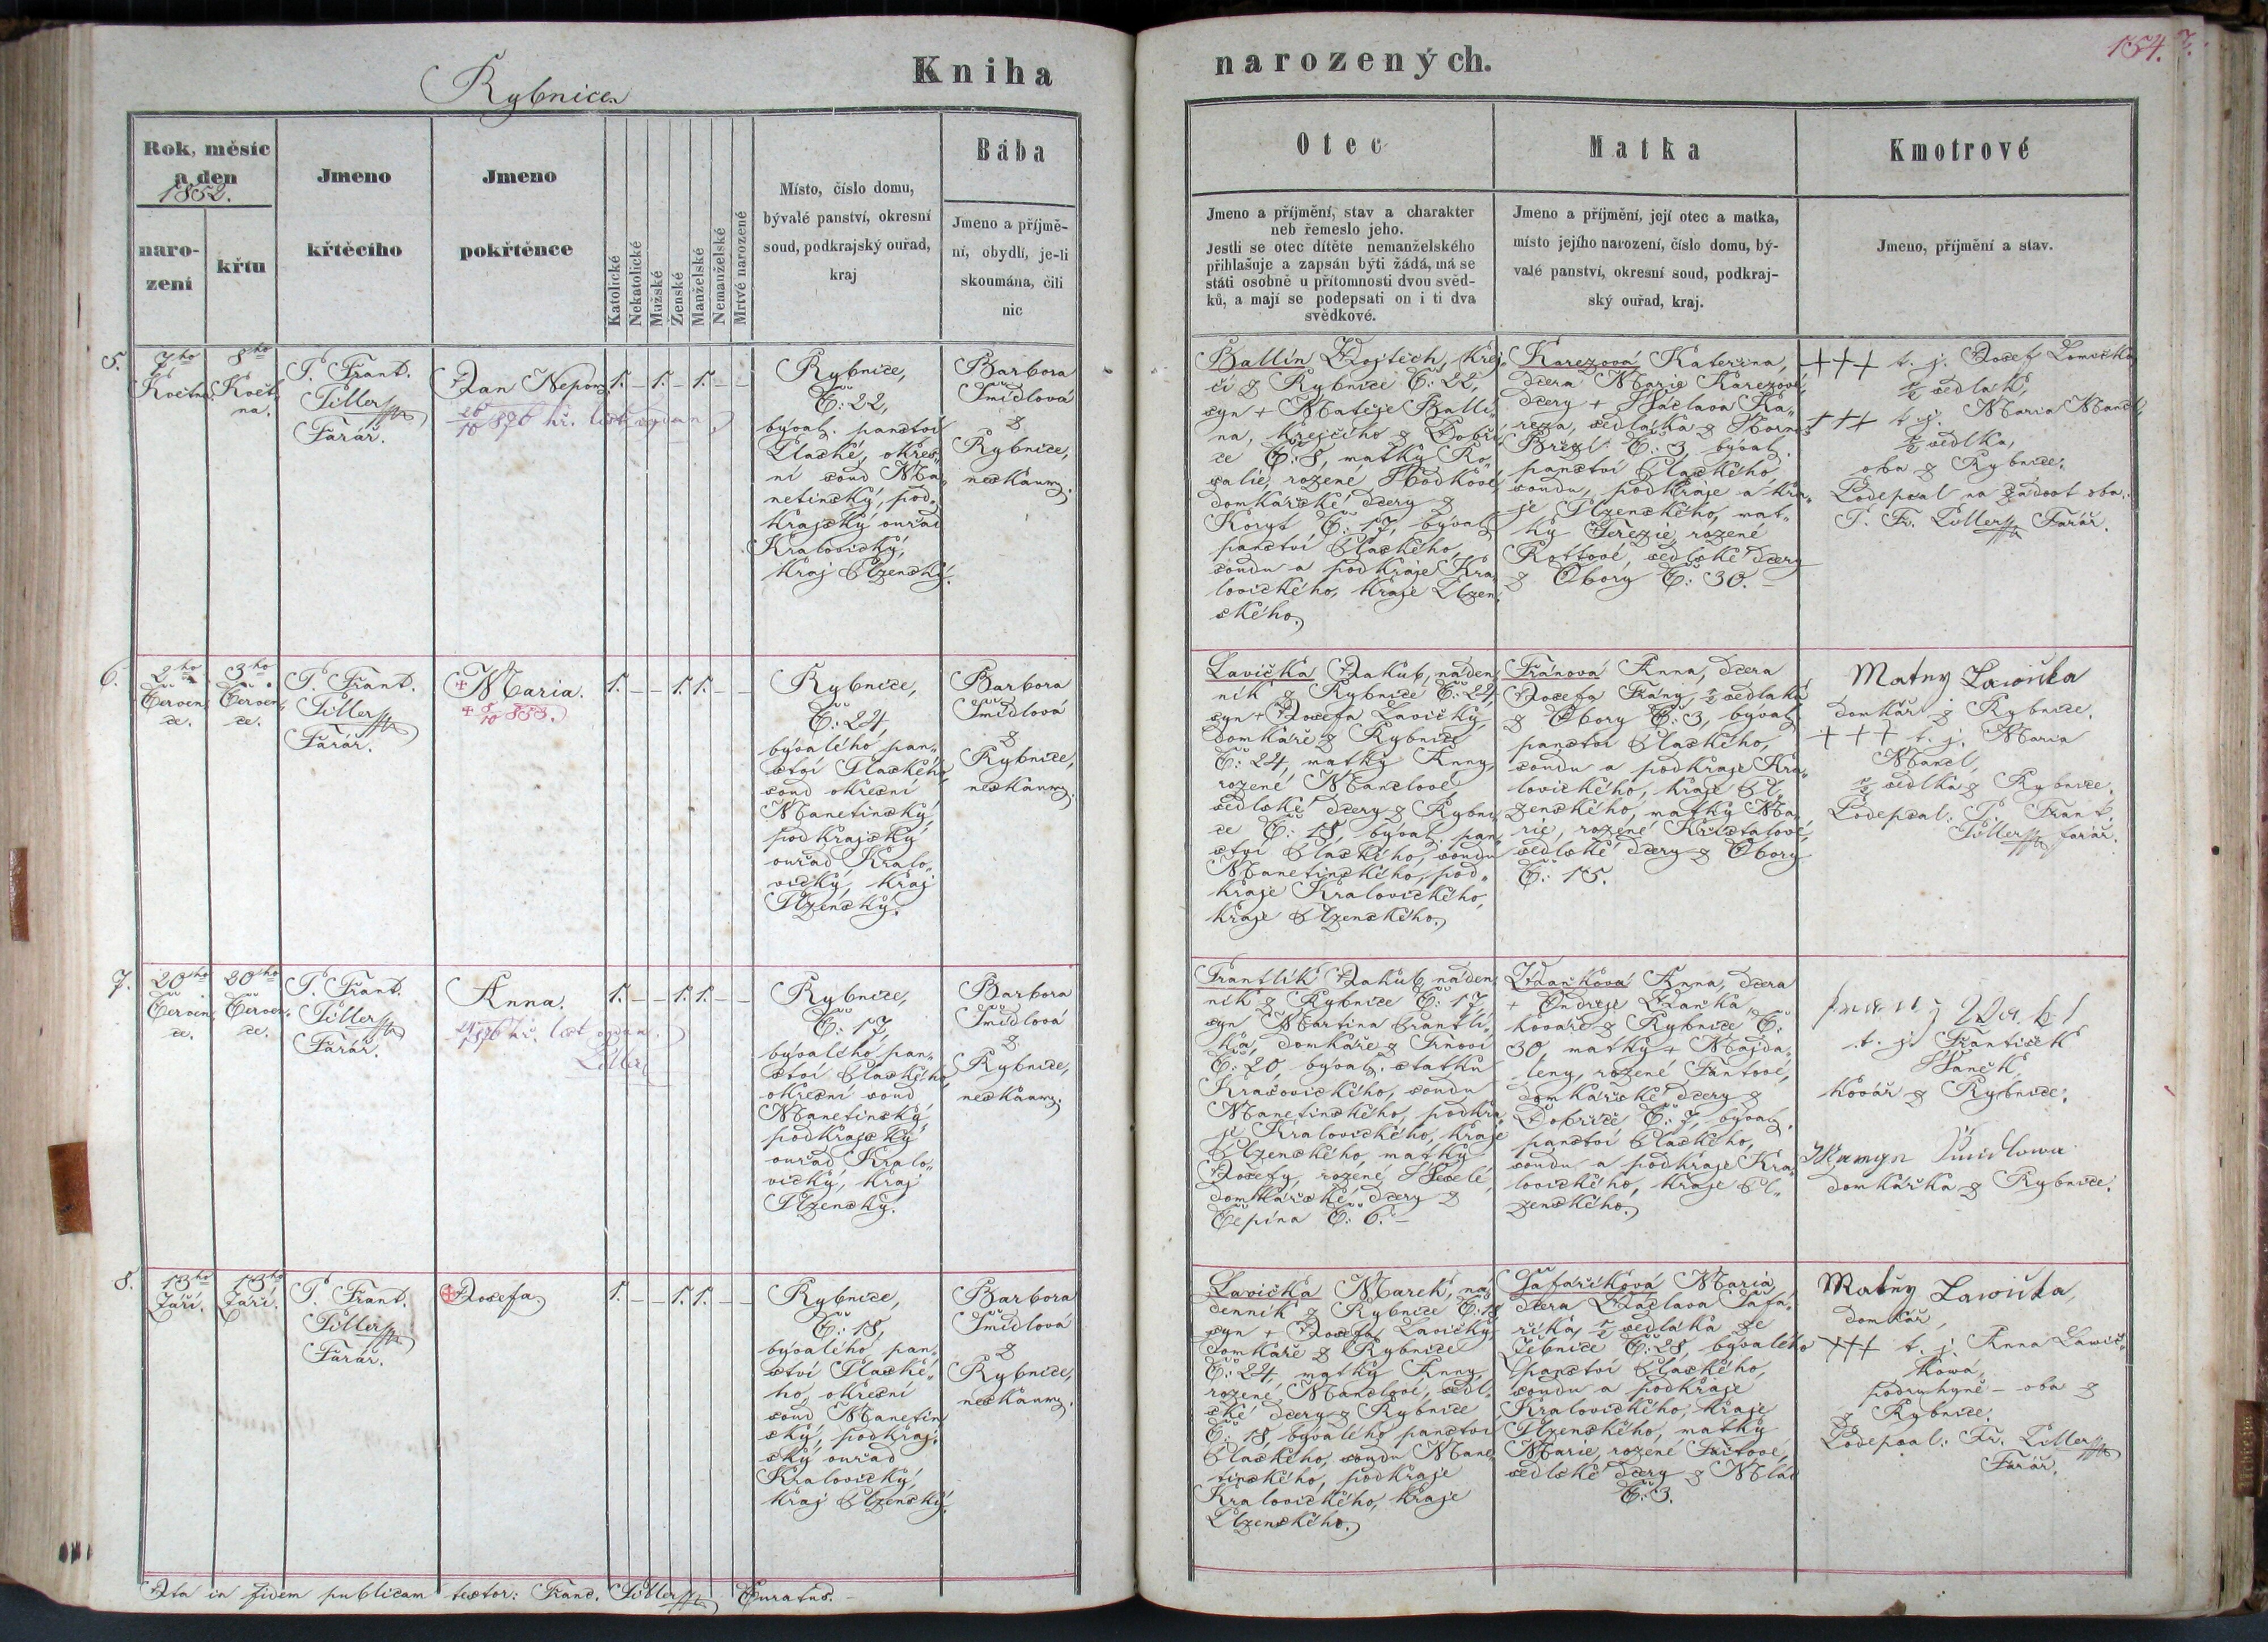 Rybnice
Kniha
narozených.
154.
Rok, měsíc
a den
1852.
naro-
zení
křtu
Jmeno
křtěcího
Jmeno
pokřtěnce
Katolické
Nekatolické
Mužské
Ženské
Manželské
Nemanželské
Mrtvé narozené
Místo, číslo domu,
bývalé panství, okresní
soud, podkrajský ouřad,
kraj
Bába
Jmeno a příjmě-
ní, obydlí, je-li
skoumána, čili
nic
Otec
Jmeno a příjmění, stav a charakter
neb řemeslo jeho.
Jestli se otec dítěte nemanželského
přihlašuje a zapsán býti žádá, má se
státi osobně u přítomnosti dvou svěd-
ků, a mají se podepsati on i ti dva
svědkové.
Matka
Jmeno a příjmění, její otec a matka,
místo jejího narození, číslo domu, bý-
valé panství, okresní soud, podkraj-
ský ouřad, kraj.
Kmotrové
Jmeno, příjmění a stav.
5.
7ho
Května
8ho
Květ-
na.
P. Frant.
Piller
Farář.
Jan Nepom.
1. – 1. – 1. – –
Rybnice,
Č: 22,
býval. panství
Plaské, okres-
ní soud Ma-
netinský, pod-
krajský ouřad
Kralovický,
kraj Plzenský.
Barbora
Šmídlová
z
Rybnice,
neskoum.
Ballín Vojtěch, krej-
čí z Rybnice Č: 22,
syn + Matěje Balli-
na, krejčího z Dobři-
ce Č: 8, matky Ro-
salie, rozené Hodkové,
domkářské dcery z
Koryt Č: 17, býval.
panství Plaského,
soudu a podkraje Kra-
lovického, kraje Plzen-
ského.
Karezová Kateřina,
dcera Marie Karezové,
dcery + Václava Ka-
reza, sedláka z Horní
Břízi Č: 3, býval.
panství Plaského,
soudu, podkraje a kra-
je Plzenského, mat-
ky Terezie rozené
Rottové, sedlské dcery
z Obory Č: 30. –
+++ t. j. Josef Lomička
1/2 sedlák,
+++ t. j. Maria Mandl,
1/2 sedlka,
oba z Rybnice.
Podepsal na žádost oba.
P. Fr. Piller Farář.
6.
2ho
Červen-
ce.
3ho
Červen-
ce.
P. Frant.
Piller
Farář.
+ Maria.
+ 5/10 853.
1. – – 1. 1. – –
Rybnice,
Č: 24,
bývalého pan-
ství Plaského,
soud okresní
Manetinský,
podkrajský
ouřad Kralo-
vický, kraj
Plzenský.
Barbora
Šmídlová
z
Rybnice,
neskoum.
Lavička Jakub, náden-
ník z Rybnice Č: 24,
syn + Josefa Lavičky,
domkáře z Rybnice
Č: 24, matky Anny,
rozené Mandlové,
sedlské dcery z Rybni-
ce Č: 18, býval. pan-
ství Plaského, soudu
Manetinského, pod-
kraje Kralovického,
kraje Plzenského.
Fránová Anna, dcera
Josefa Frány, 1/2 sedláka
z Obory Č: 3, býval.
panství Plaského,
soudu a podkraje Kra-
lovického, kraje Pl-
zenského, matky Ma-
rie, rozené Krištalové,
sedlské dcery z Obory
Č: 15.
Matny Lawička
domkář z Rybnice.
+++ t. j. Maria
Mandl,
1/2 sedlka z Rybnice.
Podepsal: P. Frant.
Piller farář.
7.
20ho
Červen-
ce.
20ho
Červen-
ce.
P. Frant.
Piller
Farář.
Anna.
1. – – 1. 1. – –
Rybnice,
Č: 17,
bývalého pan-
ství Plaského,
okresní soud
Manetinský,
podkrajský
ouřad Kralo-
vický, kraj
Plzenský.
Barbora
Šmídlová
z
Rybnice,
neskoum.
Frantlík Jakub, náden-
ník z Rybnice Č: 17,
syn Martina Frantlí-
ka, domkáře z Trnové
Č: 20, býval. statku
Kračovického, soudu
Manetinského, podkra-
je Kralovického, kraje
Plzenského, matky
Josefy, rozené Veselé,
domkářské dcery z
Čepína Č: 6. –
Vaňková Anna, dcera
+ Ondřeje Vaňka,
kováře z Rybnice Č:
30, matky + Majda-
leny, rozené Fantové,
domkářské dcery z
Dobříče Č: 7, býval.
panství Plaského,
soudu a podkraje Kra-
lovického, kraje Pl-
zenského.
t. j. František
Vaněk,
kovář z Rybnice.
Šmidlowa
domkářka z Rybnice.
8.
13ho
Září.
13ho
Září.
P. Frant.
Piller
Farář.
Josefa.
1. – – 1. 1. – –
Rybnice,
Č: 18,
bývalého pan-
ství Plaské-
ho, okresní
soud Manetin-
ský, podkraj-
ský ouřad
Kralovický,
kraj Plzenský.
Barbora
Šmídlová
z
Rybnice,
neskoum.
Lavička Marek, ná-
denník z Rybnice Č: 18,
syn + Josefa Lavičky
domkáře z Rybnice
Č: 24, matky Anny,
rozené Mandlové, sedl-
ské dcery z Rybnice
Č: 18, bývalého panství
Plaského, soudu Mane-
tinského, podkraje
Kralovického, kraje
Plzenského.
Šafaříková Maria,
dcera Václava Šafa-
říka, 1/2 sedláka ze
Žebnice Č: 28, bývalého
panství Plaského,
soudu a podkraje
Kralovického, kraje
Plzenského, matky
Marie, rozené Faitové,
sedlské dcery z Mlád
Č: 3.
Matny Lawička,
domkář,
+++ t. j. Anna Lawič-
kowá,
podruhyně – oba z
z Rybnice.
Podepsal: Fr. Piller
Farář.
Ita in fidem publicam testor: Franc. Piller Curatus. –